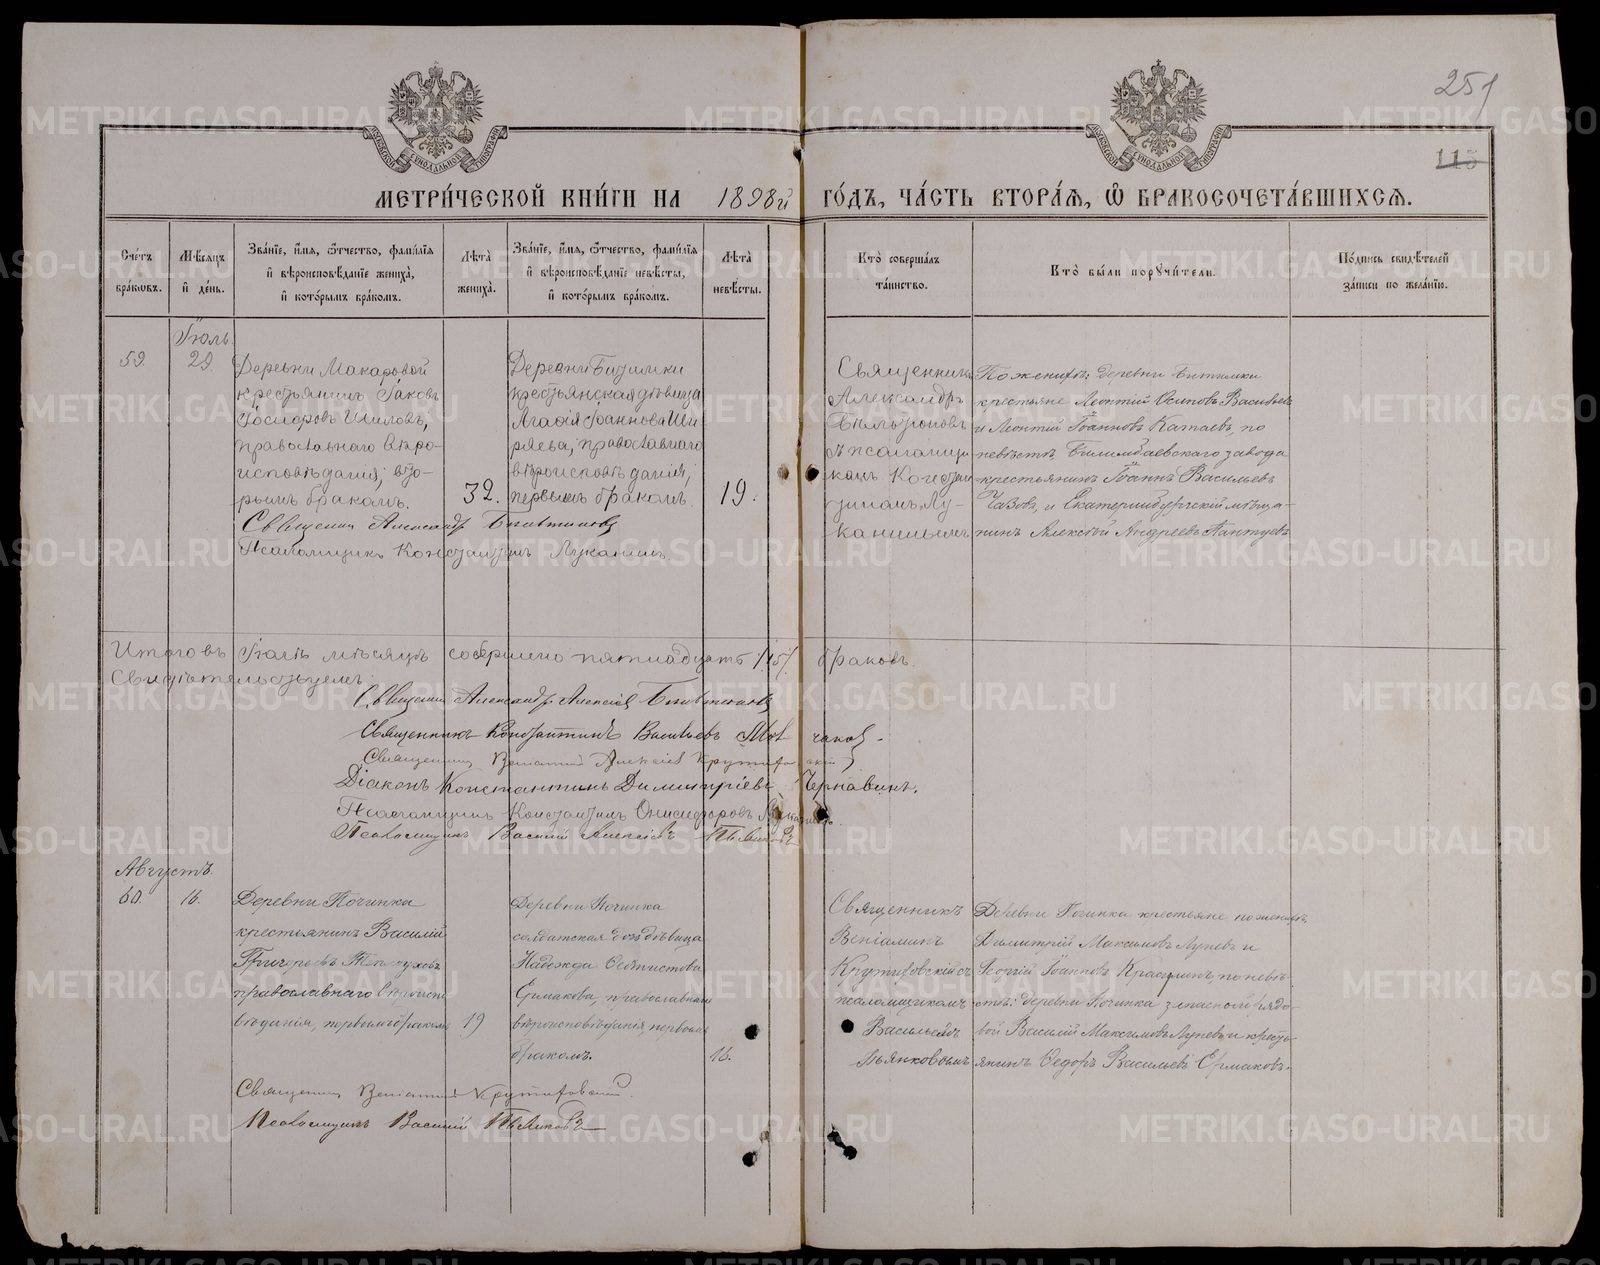 251
113
МЕТРИ́ЧЕСКОЙ КНИ́ГИ НА 1898й ГО́ДЪ, ЧА́СТЬ ВТОРА́Я, Ѿ БРАКОСОЧЕТА́ВШИХСЯ.
Сче́тъ бра́ковъ.
Мѣ́сяцъ и҆ де́нь.
Зва́нїе, и҆́мя, ѻ҆́тчество, фами́лїя
и҆ вѣроисповѣ́данїе жениха̀,
и҆ кото́рымъ бра́комъ.
Лѣ́та жениха̀.
Зва́нїе, и҆́мя, ѻ҆́тчество, фами́лїя
и҆ вѣроисповѣ́данїе невѣ́сты,
и҆ кото́рымъ бра́комъ.
Лѣ́та невѣ́сты.
Кто̀ соверша́лъ та́инство.
Кто̀ бы́ли порꙋчи́тели.
По́дпись свидѣ́телей за́писи по жела́нїю.
Іюль
59.
29.
Деревни Макаровой
крестьянинъ Іаковъ
Шиловъ,
православнаго вѣро-
исповѣданія; вто-
рымъ бракомъ.
32.
Деревни Битимки
крестьянская дѣвица
Агафія Іоаннова Ши
ряева, православнаго
вѣроисповѣданія,
первымъ бракомъ.
19.
Священникъ
Александръ
съ псаломщи
комъ Констан
тиномъ Лу-
канинымъ
По женихѣ: деревни Битимки
крестьяне Леонтій Осиповъ Васильевъ
и Леонтій Іоанновъ Катаевъ, по
невѣстѣ Билимбаевскаго завода
крестьянинъ Іоаннъ Васильевъ
и Екатеринбургскій мѣща-
нинъ Алексѣй Андреевъ Пантуевъ
Священник Александръ
Псаломщикъ Константинъ Луканинъ
Итого въ Іюлѣ мѣсяцѣ совершено пятнадцать /15/ браковъ.
Свидѣтельствуемъ:
Священник Александръ Алексіев
Священникъ Константинъ Васильевъ
Священник Веніаминъ Алексіев Крутиховскій
Діаконъ Константинъ Димитріевъ Чернавинъ.
Псаломщикъ Константинъ Онисифоровъ Луканинъ.
Псаломщикъ Василій Алексіевъ Пьянковъ
Августъ.
60.
16.
Деревни Починка
крестьянинъ Василій
Григорьевъ
православнаго вѣроиспо
вѣданія, первымъ бракомъ
19
Деревни Починка
солдатская дочь дѣвица
Надежда Ѳеоктистова
Ермакова, православнаго
вѣроисповѣданія первымъ
бракомъ.
16.
Священникъ
Веніаминъ
Крутиховскій съ
псаломщикомъ
Васильемъ
Пьянковымъ
Деревни Починка крестьяне по женихѣ
Димитрій Максимовъ Лупевъ и
Георгій Іоанновъ по невѣ-
стѣ: деревни Починка запасной рядо-
вой Василій Максимовъ Лупевъ и кресть-
янинъ Ѳедоръ Васильевъ Ермаковъ.
Священник Веніамин Крутиховскій.
Псаломщикъ Василій Пьянковъ